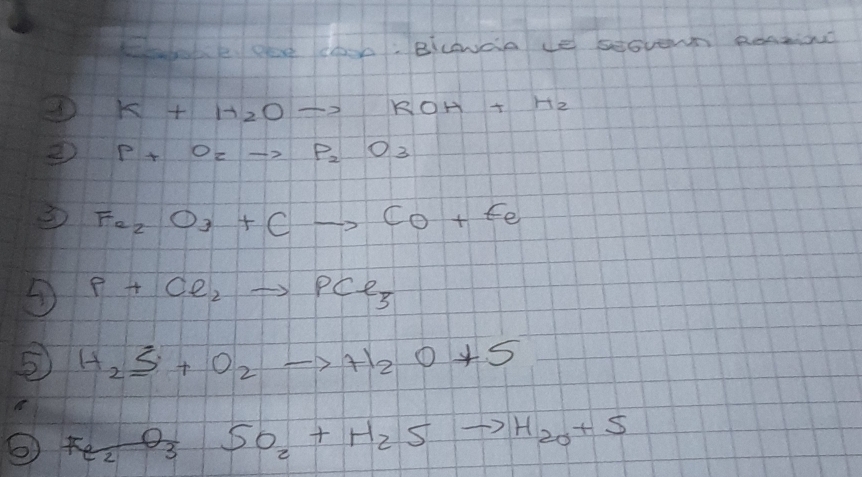 Bilancia le seguenti reazioni
① K + H2O → KOH + H2
② P + O2 → P2 O3
③ Fe2 O3 + C → CO + Fe
④ P + Cl2 → PCl3
⑤ H2S + O2 → H2 O + S
⑥ Fe2 O3 SO2 + H2S → H2O + S